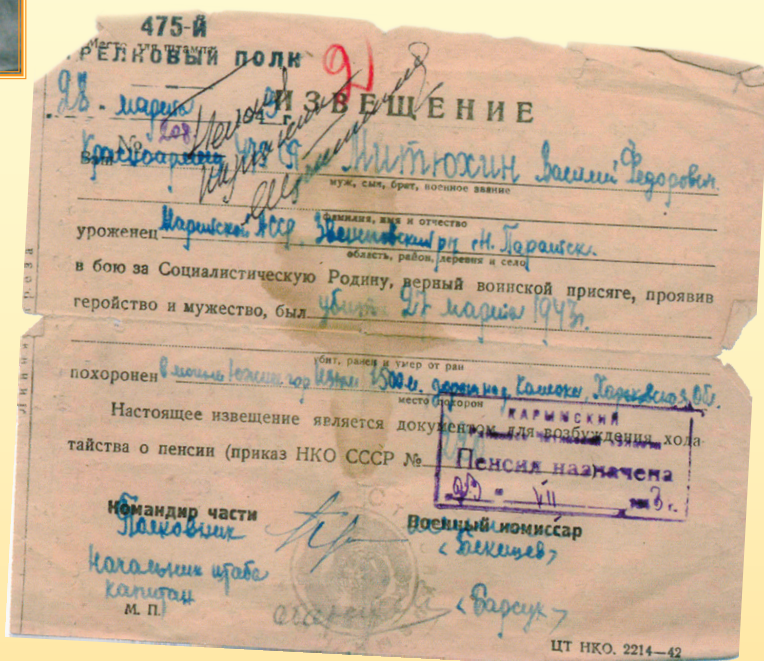 475-й
СТРЕЛКОВЫЙ ПОЛК
21
28. марта 43 г.
ИЗВЕЩЕНИЕ
№ 208
Ваш Красноармеец Митюхин Василий Федорович
муж, сын, брат, военное звание
фамилия, имя и отчество
уроженец Марийской АССР, Звениговский р-н Н. Паратск.
область, район, деревня и село
в бою за Социалистическую Родину, верный воинской присяге, проявив
геройство и мужество, был убит 27 марта 1943г.
убит, ранен и умер от ран
похоронен в могиле гор Изюм 1500 м. Харьковская Об.
место похорон
Настоящее извещение является документом для возбуждения хода-
тайства о пенсии (приказ НКО СССР №
КАРЫМСКИЙ
Пенсия назначена
VII 1943 г.
Командир части
Полковник
Военный комиссар
Начальник штаба
капитан
<Барсук>
М. П.
ЦТ НКО. 2214—42